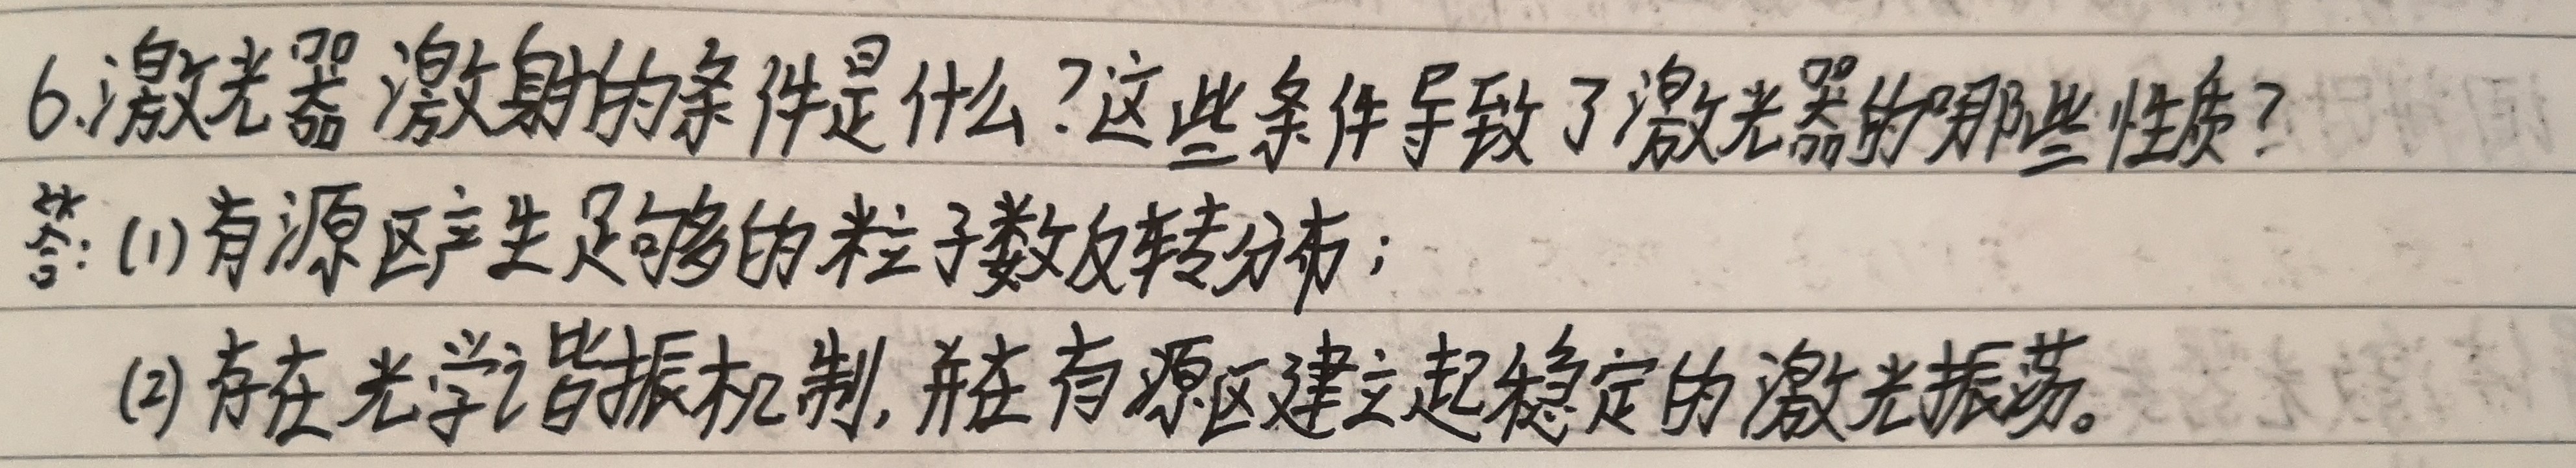 6.激光器激射的条件是什么?这些条件导致了激光器的哪些性质?
答:(1)有源区产生足够多的粒子数反转分布;
(2)存在光学谐振机制,并在有源区建立起稳定的激光振荡。